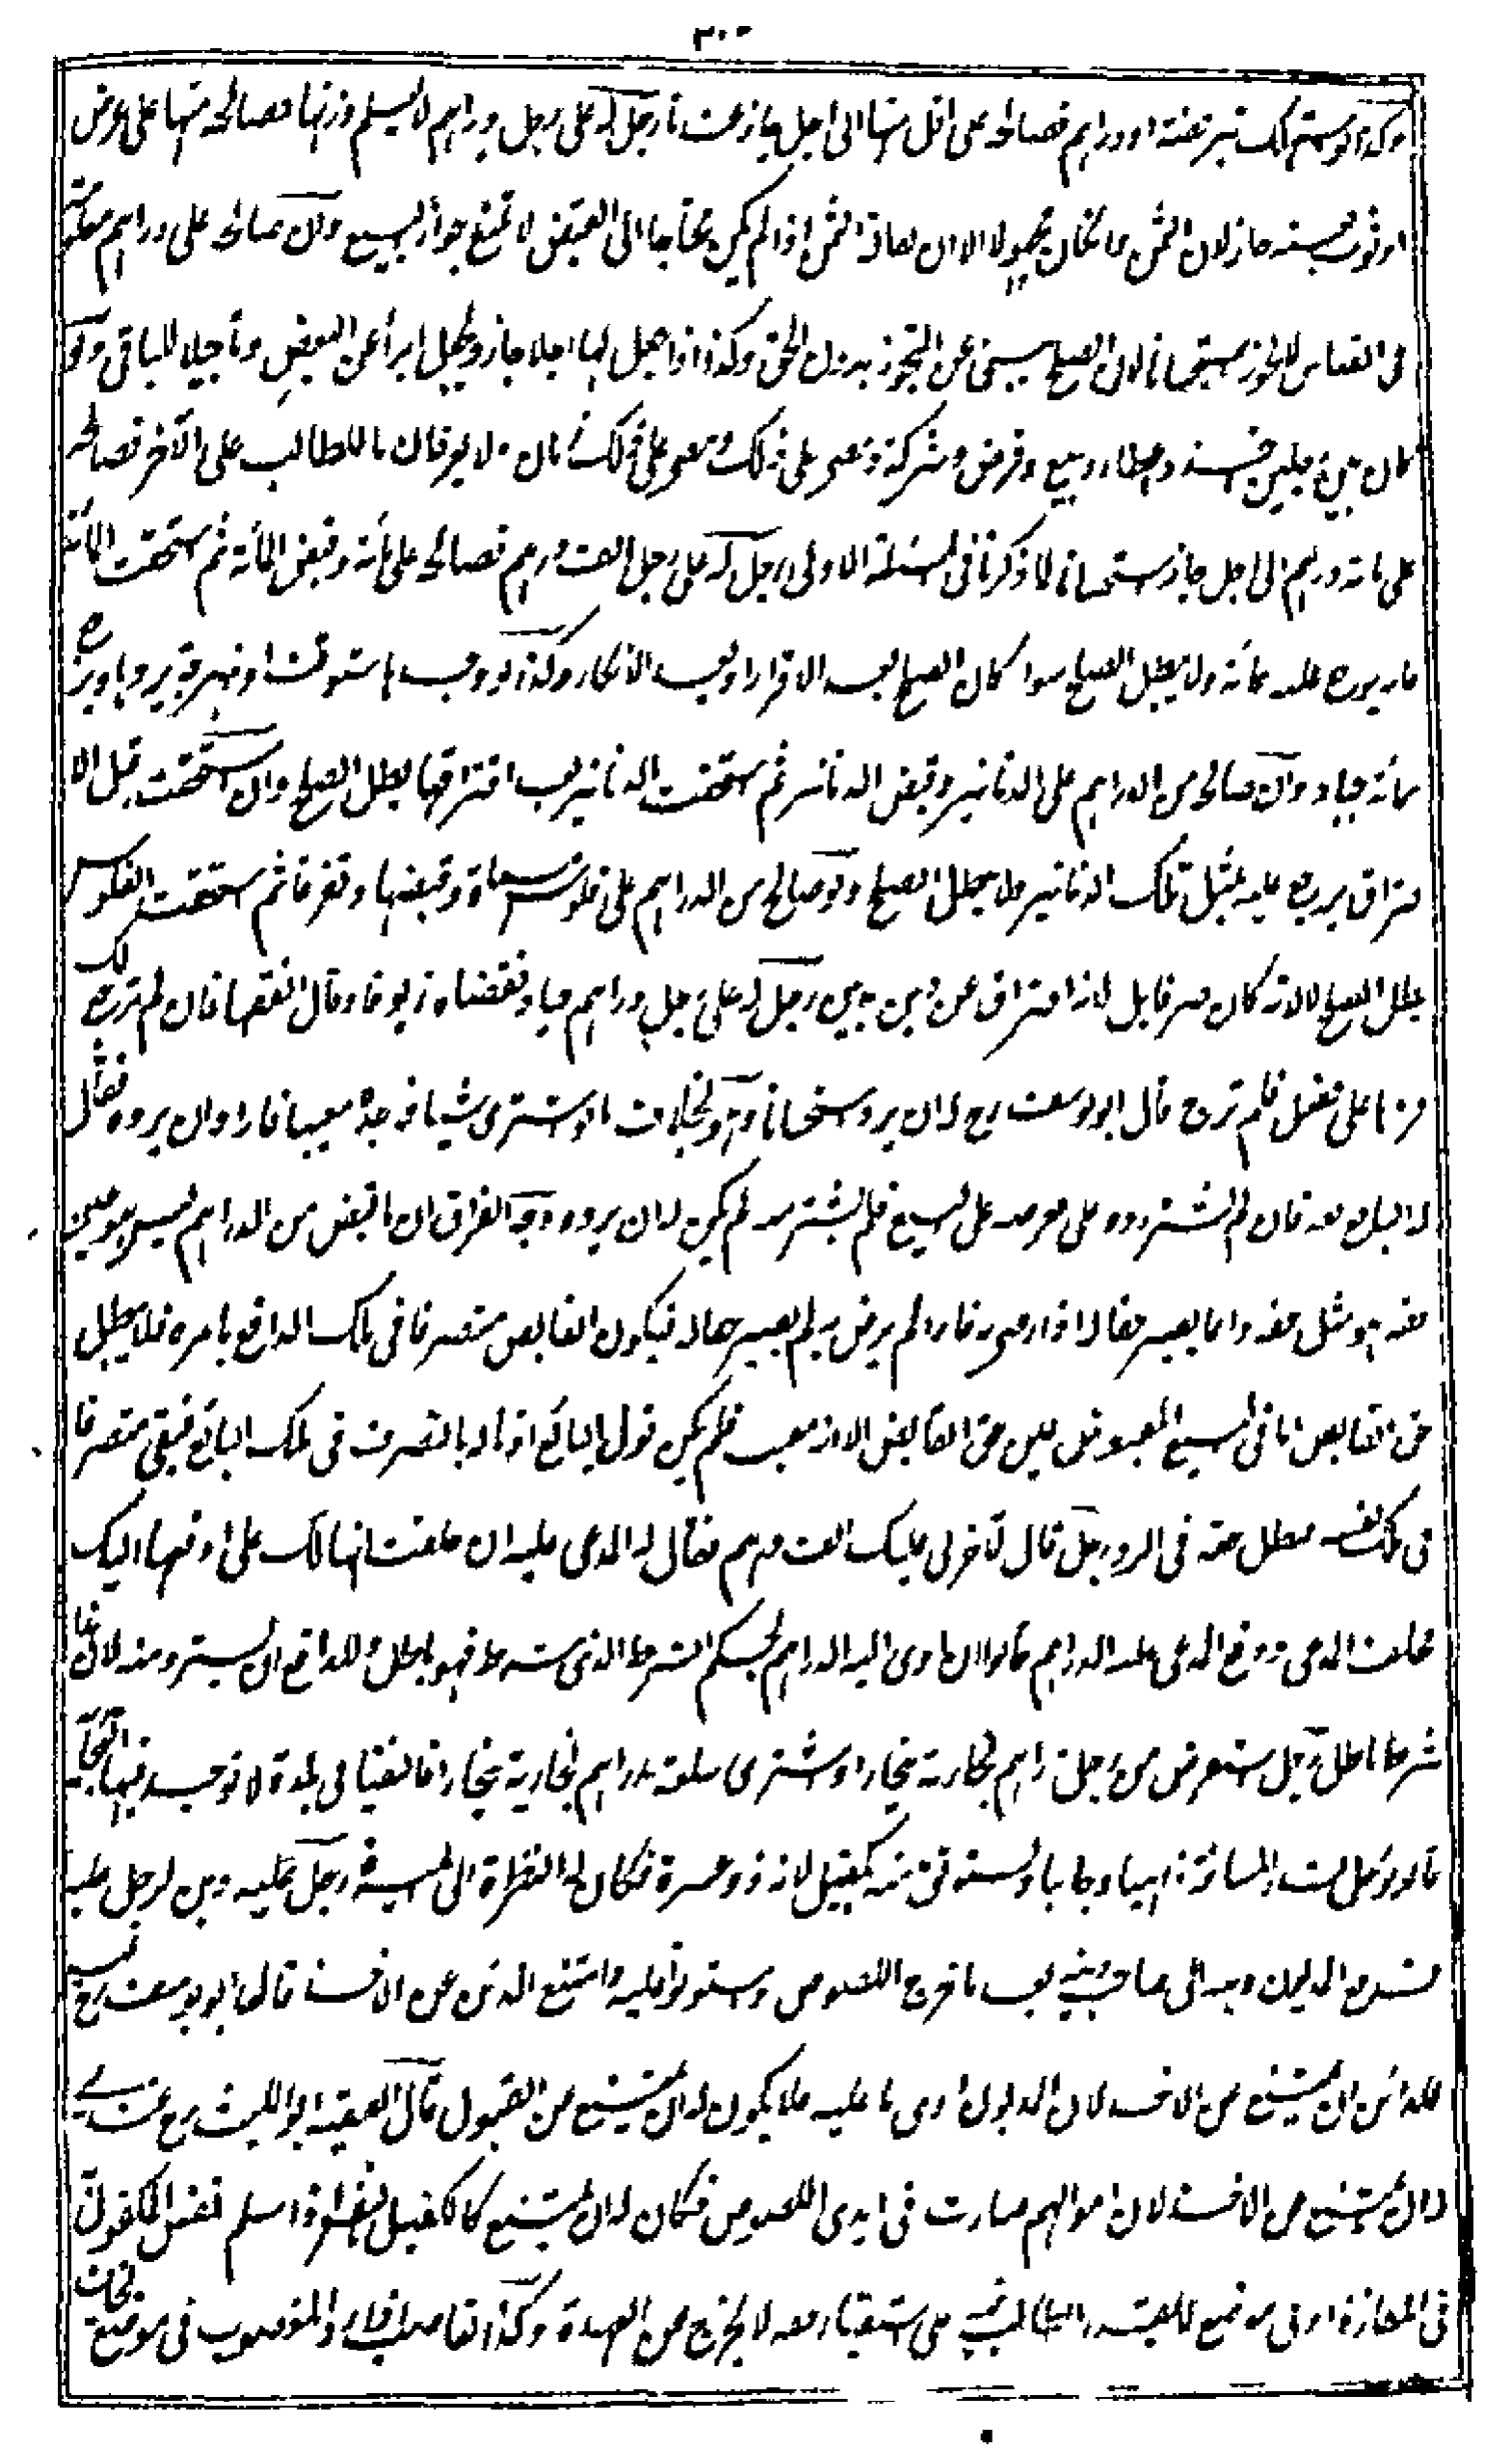 ٣٠٠
وكذا لو استهلك تبر فضة او دراهم فصالحه على اقل منها الى اجل جاز عندنا رجل له على رجل دراهم لا يعلم وزنها فصالحه منها على عرض
او ثوب بعينه جاز لان الثمن وان كان مجهولا الا ان جهالة الثمن اذا لم يكن محتاجا الى القبض لا تمنع جواز البيع وان صالحه على دراهم معلومة
فى القياس لا يجوز استحسانا لان الصلح يبنى عن التجوز بدون الحق وكذا اذا جعل لها اجلا جاز ويجعل ابرأ عن البعض وتأجيلا للباقى ولو
كان بين رجلين اخذ واعطاء وبيع وقرض وشركة ولا يعرفان ما للطالب على الآخر فصالحه
على مائة درهم الى اجل جاز استحسانا لما ذكرنا فى المسئلة الاولى رجل له على رجل الف درهم فصالحه على مأة وقبض المأة ثم استحقت المأة
فانه يرجع عليه بمأة ولا يبطل الصلح سواء كان الصلح بعد الاقرار او بعد الانكار وكذا لو وجدها ستوقة او نبهرجة يردها ويرجع
بمأة جياد وان صالحه من الدراهم على الدنانير وقبض الدنانير ثم استحقت الدنانير بعد افتراقهما بطل الصلح وان استحقت قبل الا
فتراق يرجع عليه بمثل تلك الدنانير ولا يبطل الصلح ولو صالحه من الدراهم على فلوس مسماة وقبضها وتفرقا ثم استحقت الفلوس
بطل الصلح لانه كان صرفا بل لانه افتراق عن دين بدين رجل له على رجل دراهم جياد فقضاه زيوفا وقال انفقها فان لم ترج لك
فردها على ففعل فلم ترج قال ابو يوسف رح له ان يرد استحسانا وهو بخلاف ما لو اشترى شيئا فوجده معيبا فاراد ان يرده فقال
له البائع بعه فان لم يشتر رده على فعرضه على البيع فلم يشتر منه لم يكن له ان يرده وجه الفرق ان ما قبض من الدراهم ليس هو عين
حقه بل هو مثل حقه وانما يصير حقا له اذا رضى به فاذا لم يرض به لم يصر حقا له فيكون القابض متصرفا فى ملك الدافع بامره فلا يبطل
حق القابض اما فى البيع المقبوض عين حق القابض الا انه معيب فلم يكن قول البائع اذنا له بالتصرف فى ملك البائع فبقى متصرفا
فى ملك نفسه فبطل حقه فى الرد رجل قال لآخر لى عليك الف درهم فقال له المدعى عليه ان حلفت انها لك على اوفها اليك
فحلف المدعى ودفع المدعى عليه الدراهم قالوا ان ادى اليه الدراهم بحكم الشرط الذى شرط فهو باطل وللدافع ان يسترد منه لان هذا
شرط باطل رجل استقرض من رجل دراهم بخارية ببخارا او اشترى سلعة بدراهم بخارية ببخارا فالتقيا فى بلدة لا توجد فيها البخارية
قالوا يؤجل قدر المسافة ذاهبا وجائيا ويستوثق منه بكفيل لانه ذو عسرة فكان له النظرة الى الميسرة رجل عليه دين لرجل عليه
فدفع المديون دينه الى صاحبه بعد ما خرج اللصوص واستولوا عليه وامتنع الدائن عن الاخذ قال ابو يوسف رح ليس
للدائن ان يمتنع من الاخذ لان المديون ادى ما عليه فلا يكون له ان يمتنع من القبول قال الفقيه ابو الليث رح عندى
له ان يمتنع من الاخذ لان اموالهم صارت فى ايدى اللصوص فكان له ان يمتنع كالكفيل بالنفس اذا سلم نفس المكفول
فى المفازة او فى موضع لا يقدر الطالب على استيفاء حقه لا يخرج عن العهدة وكذا الغاصب اذا رد المغصوب فى موضع يخاف